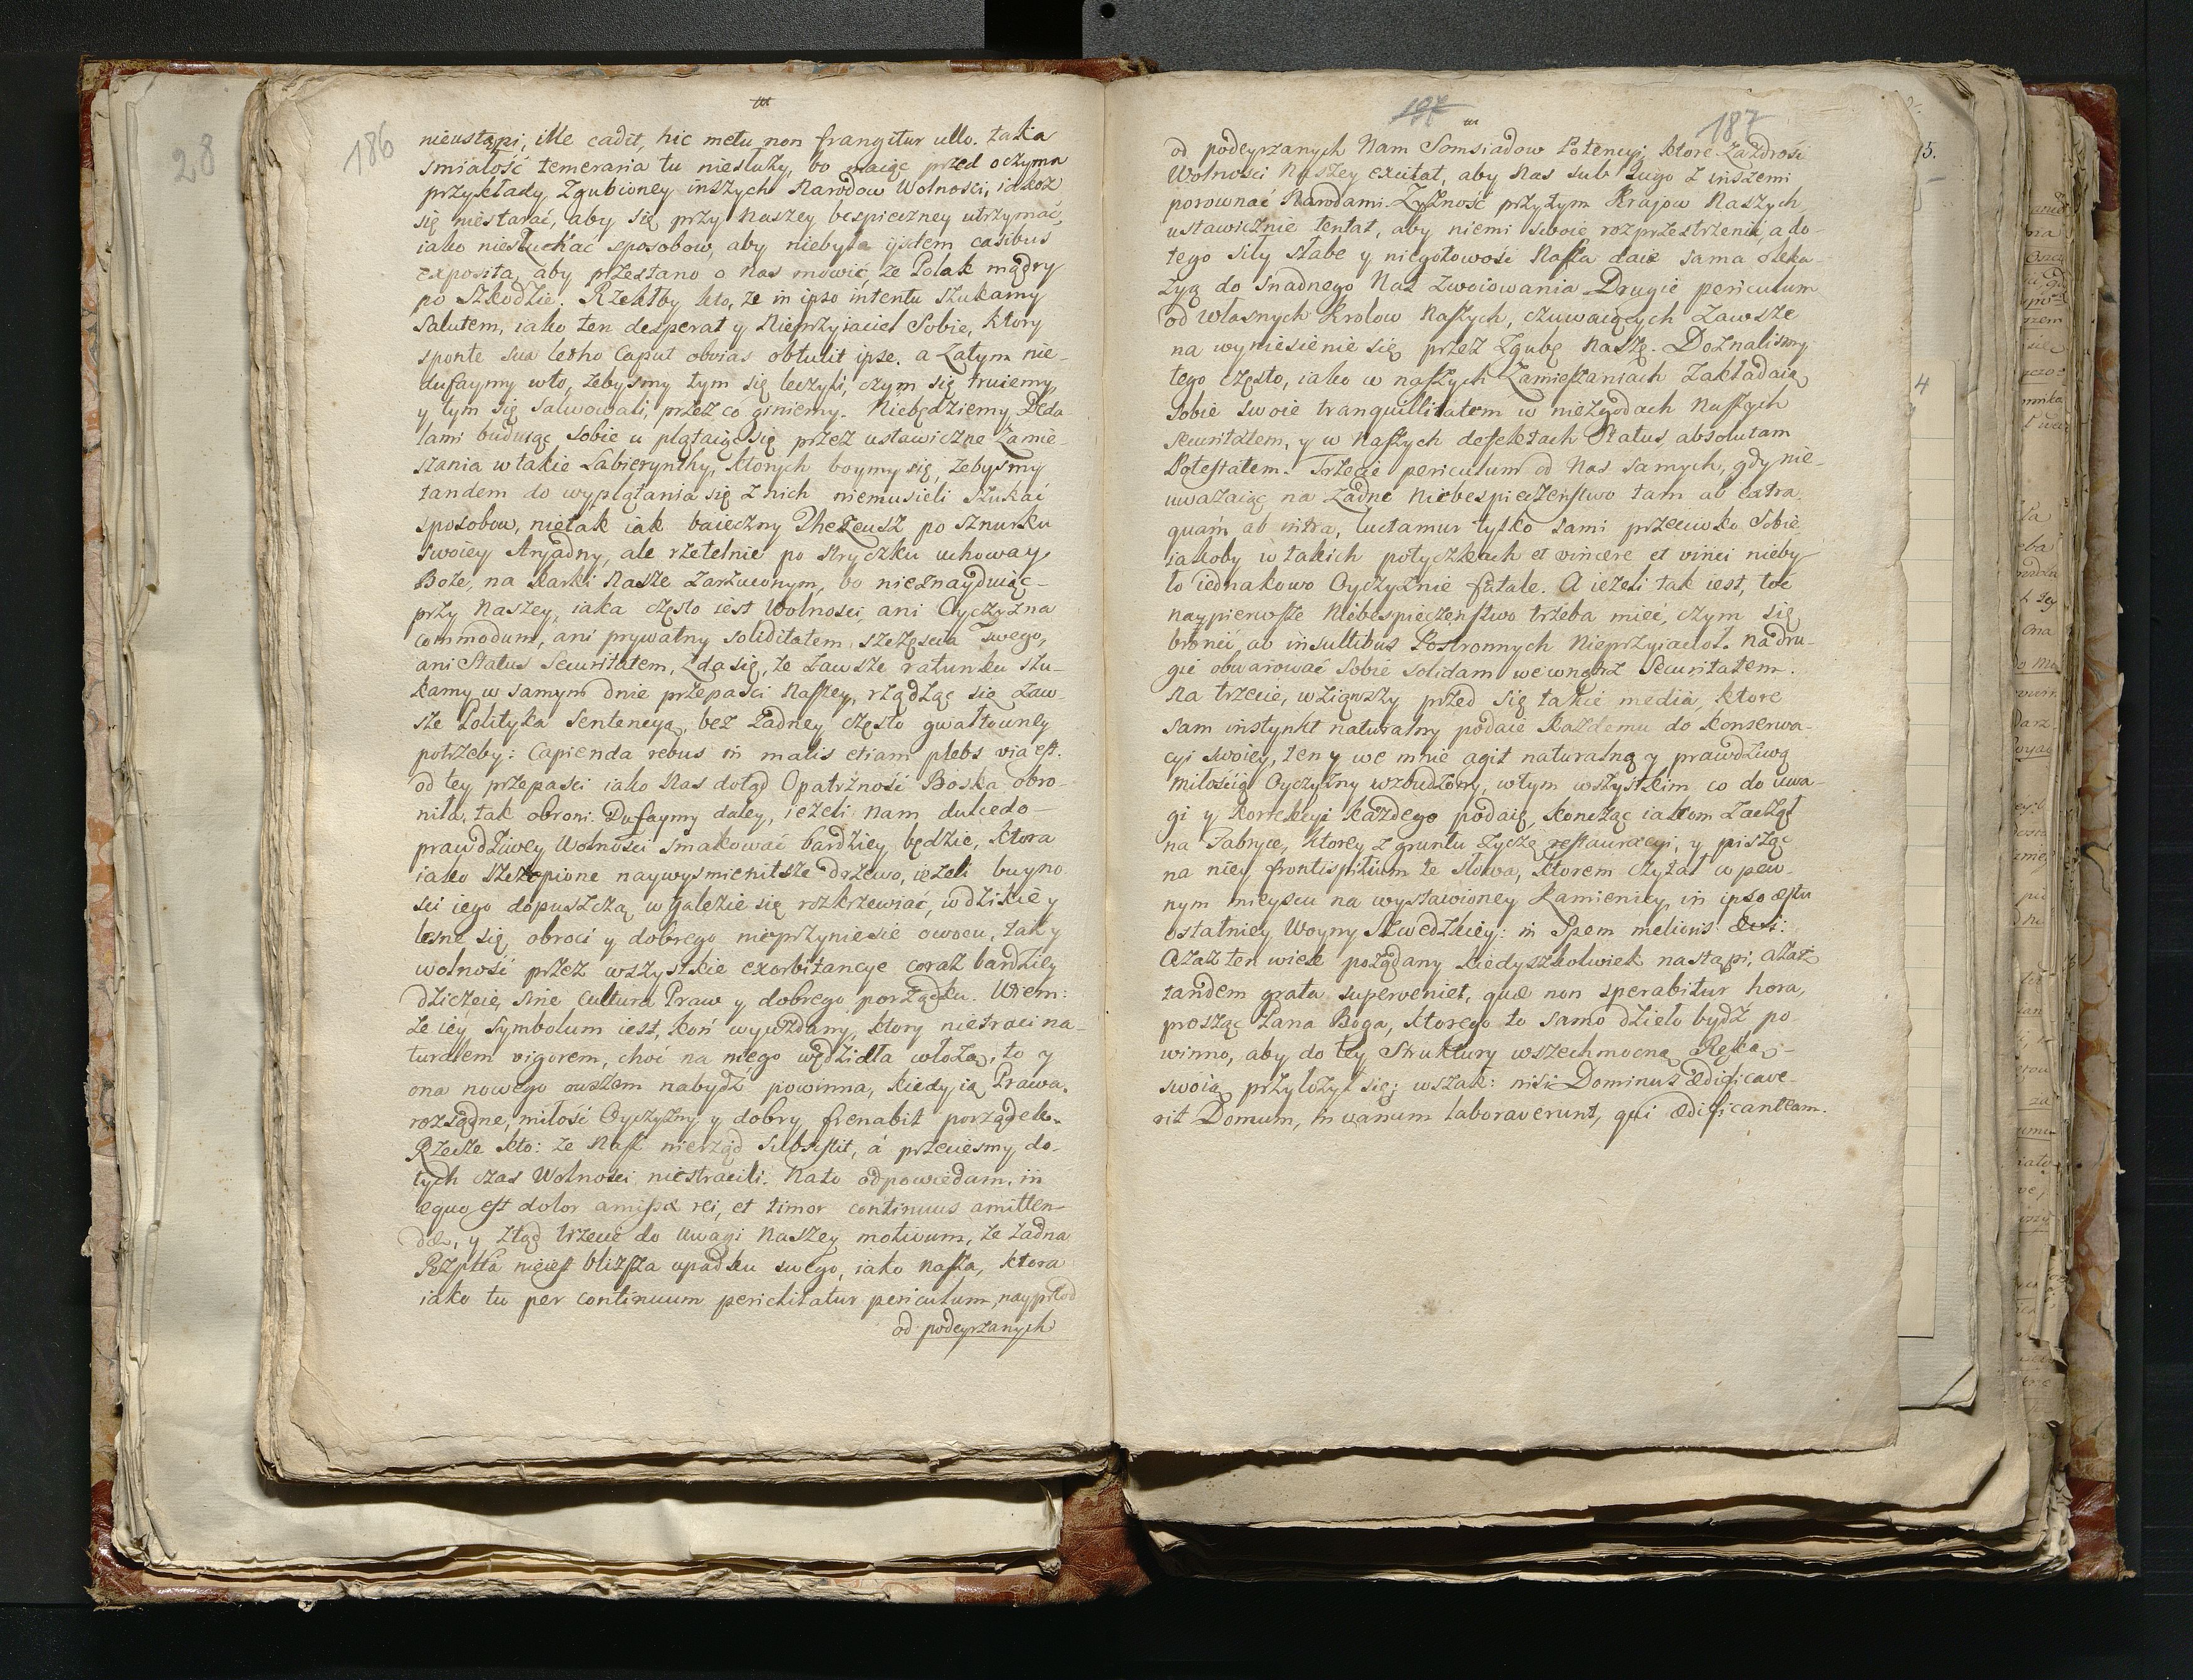 28
186
nieustąpi, ille cadit, hic metu non frangitur ullo. taka
smiałość temeraria tu niesłuży, bo maiąc przed oczyma
przykłady zgubioney inszych Narodow Wolności, iakoż
się niestarać, aby się przy Naszey bespieczney utrzymać,
iako niesłuchać sposobow, aby niebyła ijsdem casibus
exposita, aby przestano o Nas mówić, że Polak mądry
po szkodzie. Rzekłby kto, że in ipso intentu szukamy
Salutem, iako ten desperat y Nieprzyiaciel Sobie, ktory
sponte sua letho Caput obvias obtulit ipse. a zatym nie-
dufaymy wto, żebysmy tym się leczyli, czym się truiemy,
y tym się salwowali, przez co giniemy. Niebędziemy Deda
lami buduiąc sobie u plątaiąc się przez ustawiczne zamie-
szania wtakie Labierynthy, ktorych boymy się, żebysmy
tandem do wyplątania się z nich niemusieli szukać
sposobow, nietak iak baieczny Thezeusz po sznurku
swoiey Aryadny, ale rzetelnie po stryczku uchoway
Boże, na karki Nasze zarzuconym, bo nieznayduiąc-
przy Naszey, iaka często iest Wolności, ani Oyczyzna
commodum, ani prywatny soliditatem szczęscia swego,
ani Status Securitatem, zda się, że zawsze ratunku szu-
kamy w samym dnie przepaści Naszey, rządząc się zaw-
sze Polityka Sentencyą, bez żadney często gwałtowney
potrzeby: Capienda rebus in malis etiam plebs via est.
od tey przepaści iako Nas dotąd Opatrzność Boska obro-
niła, tak obroni. Dufaymy daley, ieżeli nam dulcedo-
prawdziwey Wolności smakować bardziey będzie, ktora
iako szczepione naywysmienitsze drzewo, ieżeli buyno
ści iego dopuszczą w gałęzie się rozkrzewiać, w dzikie y
leśne się obroci y dobrego nieprzyniesie owocu, tak y
wolność przez wszystkie exorbitancye coraz bardziey
dziczeie, sine cultura Praw y dobrego porządku. Wiem:
że iey symbolum iest, koń wyuzdany, ktory nietraci na-
turalem vigorem, choć na niego wędzidła włożą, to y
ona nowego owszem nabydź powinna, kiedy ią Prawa
rozsądne, miłość Oyczyzny y dobry frenabit porządek.
Rzecze kto: że Nasz nierząd subsistit, á przeciesmy do-
tych czas Wolności niestracili. Nato odpowiedam, in
equo est dolor amissæ rei, et timor continuus amitten-
dæ, y ztąd trzecie do uwagi Naszey motivum, że żadna
Rzplta nieiest bliższa upadku swego, iako Nasza, ktora
iako tu per continuum periclitatur periculum, nayprzod
od podeyrzanych
187
od podeyrzanych Nam Somsiadow Potencyi, ktore zazdrość
Wolności Naszey excitat, aby Nas sub iugo z inszemi
porownać Narodami. Żyzność przytym Krajow Naszych
ustawicznie tentat, aby niemi swoie rozprzestrzenić, a do-
tego siły słabe y niegotowość Nasza daie sama oka-
zyą do snadnego Nas zwoiowania. Drugie periculum
od własnych Krolow Naszych, czuwaiących zawsze
na wyniesienie się przez zgubę Naszę. Doznalismy
tego często, iako w naszych zamieszaniach zakładaią
sobie swoie tranquillitatem w niezgodach Naszych
securitatem, y w Naszych defektach Status, absolutam
Potestatem. Trzecie periculum od Nas samych, gdy nie-
uważaiąc na żadne Niebespieczeństwo tam ab extra,
quam ab intra, luctamur tylko sami przeciwko Sobie
iakoby w takich potyczkach et vincere et vinci nieby
ło iednakowo Oyczyznie fatale. A ieżeli tak iest, toć
naypierwsze Niebespieczeństwo trzeba mieć, czym się
bronić, ab insultibus Postronnych Nieprzyiacioł. Na dru-
gie obwarować sobie solidam wewnątrz Securitatem.
Na trzecie, wziąwszy przed się takie media, ktore
sam instynkt naturalny podaie każdemu do konserwa-
cyi swoiey, ten y we mnie agit naturalną y prawdziwą
miłością Oyczyzny wzbudzony, wtym wszystkim co do uwa-
gi y korrekcyi każdego podaię, kończąc iakom zaczął
na Fabryce, ktorey z gruntu życzę restauracyi, y pisząc
na niey frontispitium te słowa, ktorem czytał w pew-
nym mieyscu na wystawioney Kamienicy, in ipso æstu
ostatniey Woyny Szwedzkiey: in Spem melioris ævi:
Azaż ten wiek pożądany kiedyszkolwiek nastąpi, Azaż
tandem grata superveniet, quæ non sperabitur hora,
prosząc Pana Boga, ktorego to samo dzieło bydź po
winno, aby do tey Struktury wszechmocną Ręką-
swoią przyłożył się; wszak: nisi Dominus ædificave-
rit Domum, in vanum laboraverunt, qui ædificant eam.
15.
4